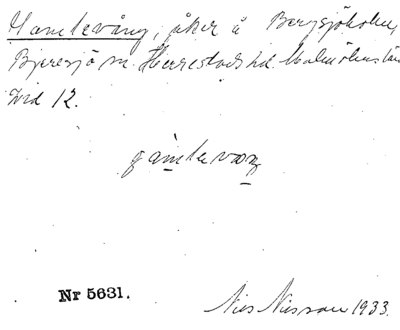 Gamlevång, åker å Bergsjöholm,
Bjeresjö sn. Herrestads hd. Malmöhus län
Hld 12.
gamlevaŋ
Nr 5631.
Nils Nilsson 1933.